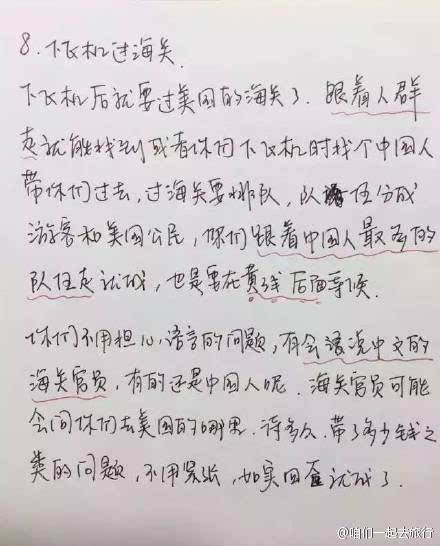 8.下飞机过海关.
下飞机后就要过美国的海关了.跟着人群
走就能找到或者你们下飞机时找个中国人
带你们过去,过海关要排队,队伍分成
游客和美国公民,你们跟着中国人最多的
队伍走就成,也是要在黄线后面等候.
你们不用担心语言的问题,有会说中文的
海关官员,有的还是中国人呢.海关官员可能
会问你们去美国的哪里.待多久.带了多少钱之
类的问题,不用紧张,如实回答就成了.
@咱们一起去旅行